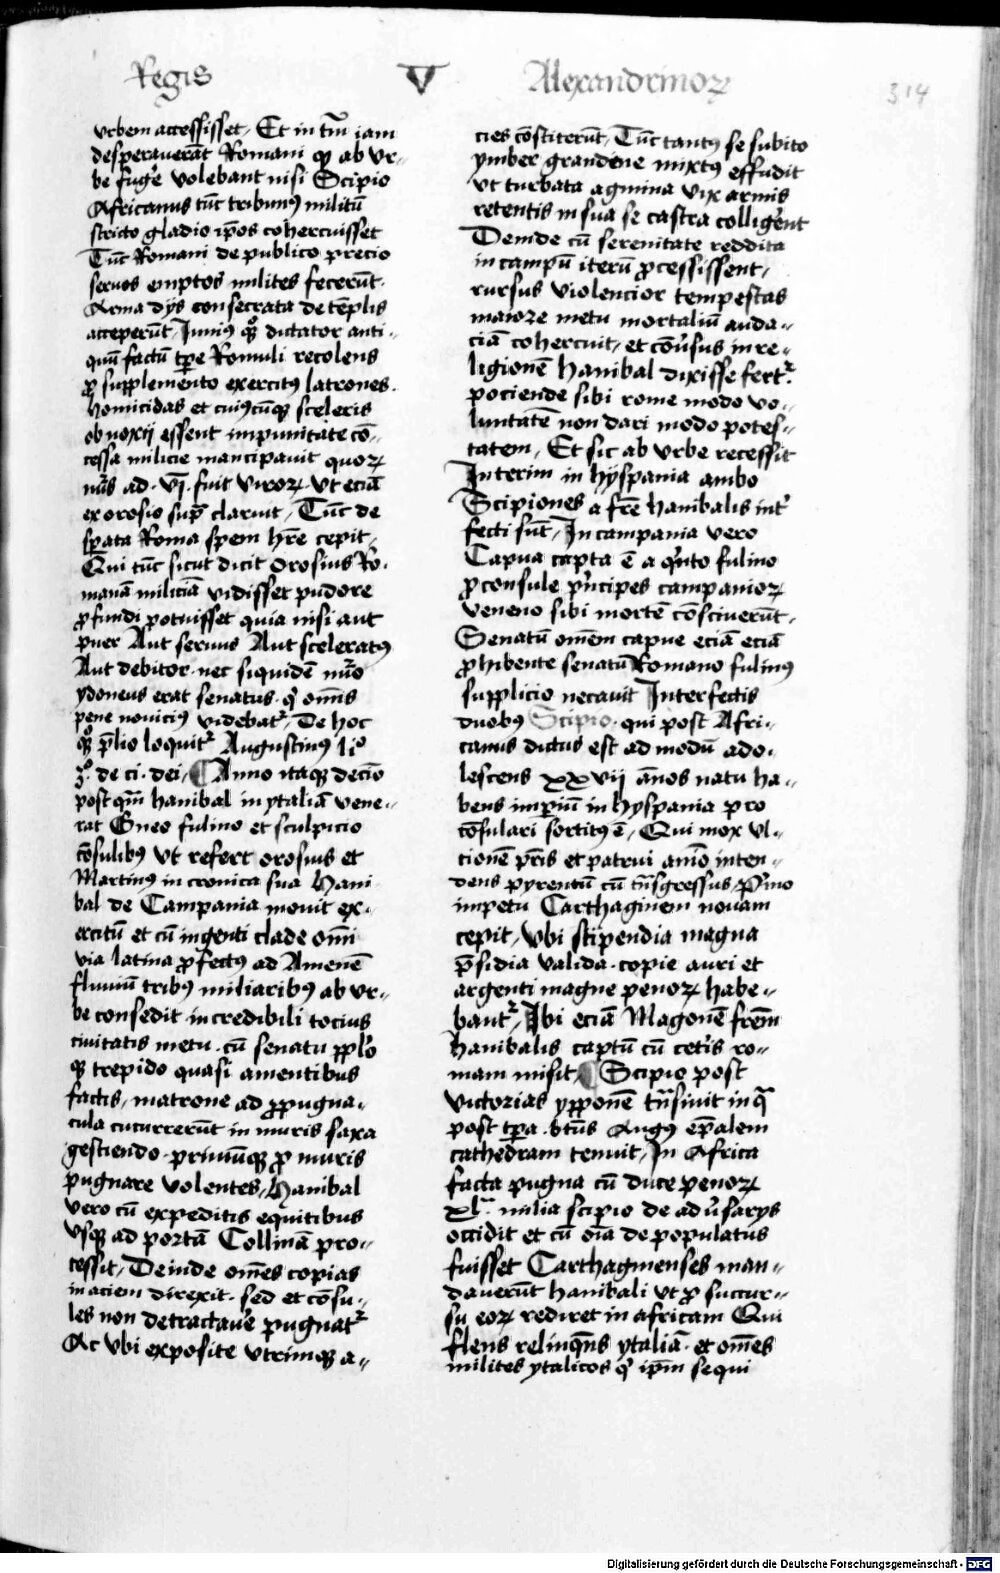 Regis V Alexandrinoꝝ
314
vrbem accessisset, Et in tm̄ iam
desperauerāt Romani ꝙ ab vr-
be fuge᷑ volebant nisi Scipio
Africanus tūc tribunꝰ militū
stricto gladio ip̄os cohercuisset
Tūc Romani de publico precio
seruos emptos milites fecerūt.
Arma dijs consecrata de tēplis
acceperūt, Juniꝰ qꝫ dictator anti-
quū factū tp̄e Romuli recolens
ꝓ supplemento exercitꝰ latrones.
homicidas et cuiꝰcūqꝫ sceleris
obnoxij essent impunitate cō-
cessa milicie mancipauit quoꝝ
nūs ad .vj. fuit viroꝝ. vt eciā
ex orosio sup̄ claruit, Tūc de
sꝑata Roma spem hr̄e cepit,
Qui tūc sicut dicit Orosius Ro-
manā miliciā vidisset pudore
ꝓfundi potuisset quia nisi aut
puer Aut seruus Aut sceleratꝰ
Aut debitor. nec siquidē nūo
ydoneus erat senatus. qͥ om̄is
pene nouiciꝰ videbatᷣ. De hoc
qꝫ p̄lio loquitᷣ Augustinꝰ liᵒ
3ᵒ. de ci. dei, ¶Anno itaqꝫ decīo
post qm̄ hanibal in ytaliā vene-
rat Gneo fuluio et sculpicio
cōsulibꝰ vt refert orosius et
Martinꝰ in cronica sua Hani
bal de Campania mouit ex-
ercitū et cū ingenti clade om̄i
via latina ꝓfectꝰ ad Amenē
fluuiū tribꝰ miliaribꝰ ab vr-
be consedit incredibili tocius
ciuitatis metu. cū senatu ppl̄o
qꝫ trepido quasi amentibus
factis, matrone ad ꝓpugna-
cula cucurrerūt in muris saxa
gestiendo. primūqꝫ ꝓ muris
pugnare volentes, Hanibal
vero cū expeditis equitibus
vsqꝫ ad portā Collinā pro-
cessit, Deinde om̄es copias
in aciem direxit. sed et cōsu-
les non detractaue᷑ pugnatᷣ
Ac vbi exposite vtrimqꝫ a-
cies cōstiterūt, Tūc tantꝰ se subito
ymber grandine mixtꝰ effudit
vt turbata agmina vix armis
retentis in sua se castra collige᷑nt
Deinde cū serenitate reddita
in campū iterū ꝓcessissent,
rursus violencior tempestas
maiore metu mortaliū auda-
ciā cohercuit, et cōu᷑sus in re-
ligionē hanibal dixisse fertᷣ.
pociende sibi rome modo vo-
luntatē non dari modo potes-
tatem, Et sic ab vrbe recessit
Interim in hyspania ambo
Scipiones a fr̄e hanibalis int᷑
fecti sūt, In campania vero
Capua capta ē a qͥnto fuluio
ꝓconsule pͥncipes campanioꝝ
veneno sibi mortē cōsciuerūt.
Senatū om̄em capue eciā eciā
ꝓhibente senatū Romano fuluiꝰ
supplicio necauit Interfectis
duobꝰ Scipio. qui post Afri-
canus dictus est admodū ado-
lescens xxvij annos natu ha-
bens impiū in hyspania pro
cōsulari sortitꝰ ē, Qui mox vl-
tionē pr̄is et patrui aīo inten-
dens pyreneū cū tn̄sgressus, Pͥmo
impetu Carthaginem nouam
cepit, vbi stipendia magna
p̄sidia valida. copie auri et
argenti magne penoꝝ habe-
bantᷣ, Ibi eciā Magonē fr̄em
hanibalis captū cū cet᷑is ro-
mam misit, ¶Scipio post
victorias ypponē tn̄siuit in qͣ
post tp̄a .btūs Augꝰ ep̄alem
cathedram tenuit, In Africa
facta pugna cū duce penoꝝ
xlᵃ. milia scipio de adu᷑sarijs
occidit et cū oīa depopulatus
fuisset Carthaginenses man-
dauerūt hanibali vt ꝓ succur-
su eoꝝ rediret in africam Qui
flens relinqͣns ytaliā. et om̄es
milites ytalicos qͥ ip̄m sequi
Digitalisierung gefördert durch die Deutsche Forschungsgemeinschaft - DFG